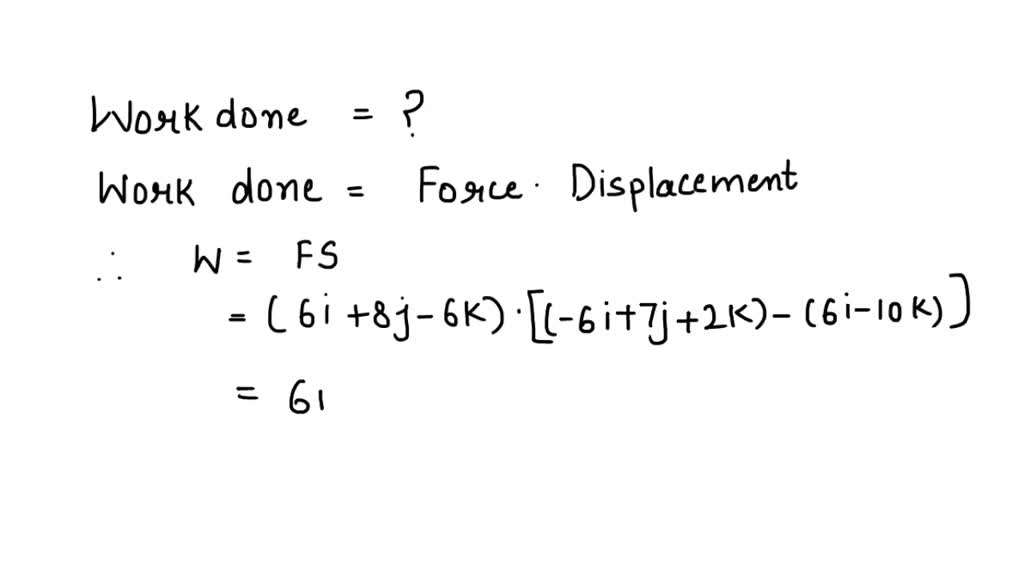 Work done = ?
Work done = Force · Displacement
∴ W = FS
= (6i + 8j - 6k) · [(-6i + 7j + 2k) - (6i - 10k)]
= 6i